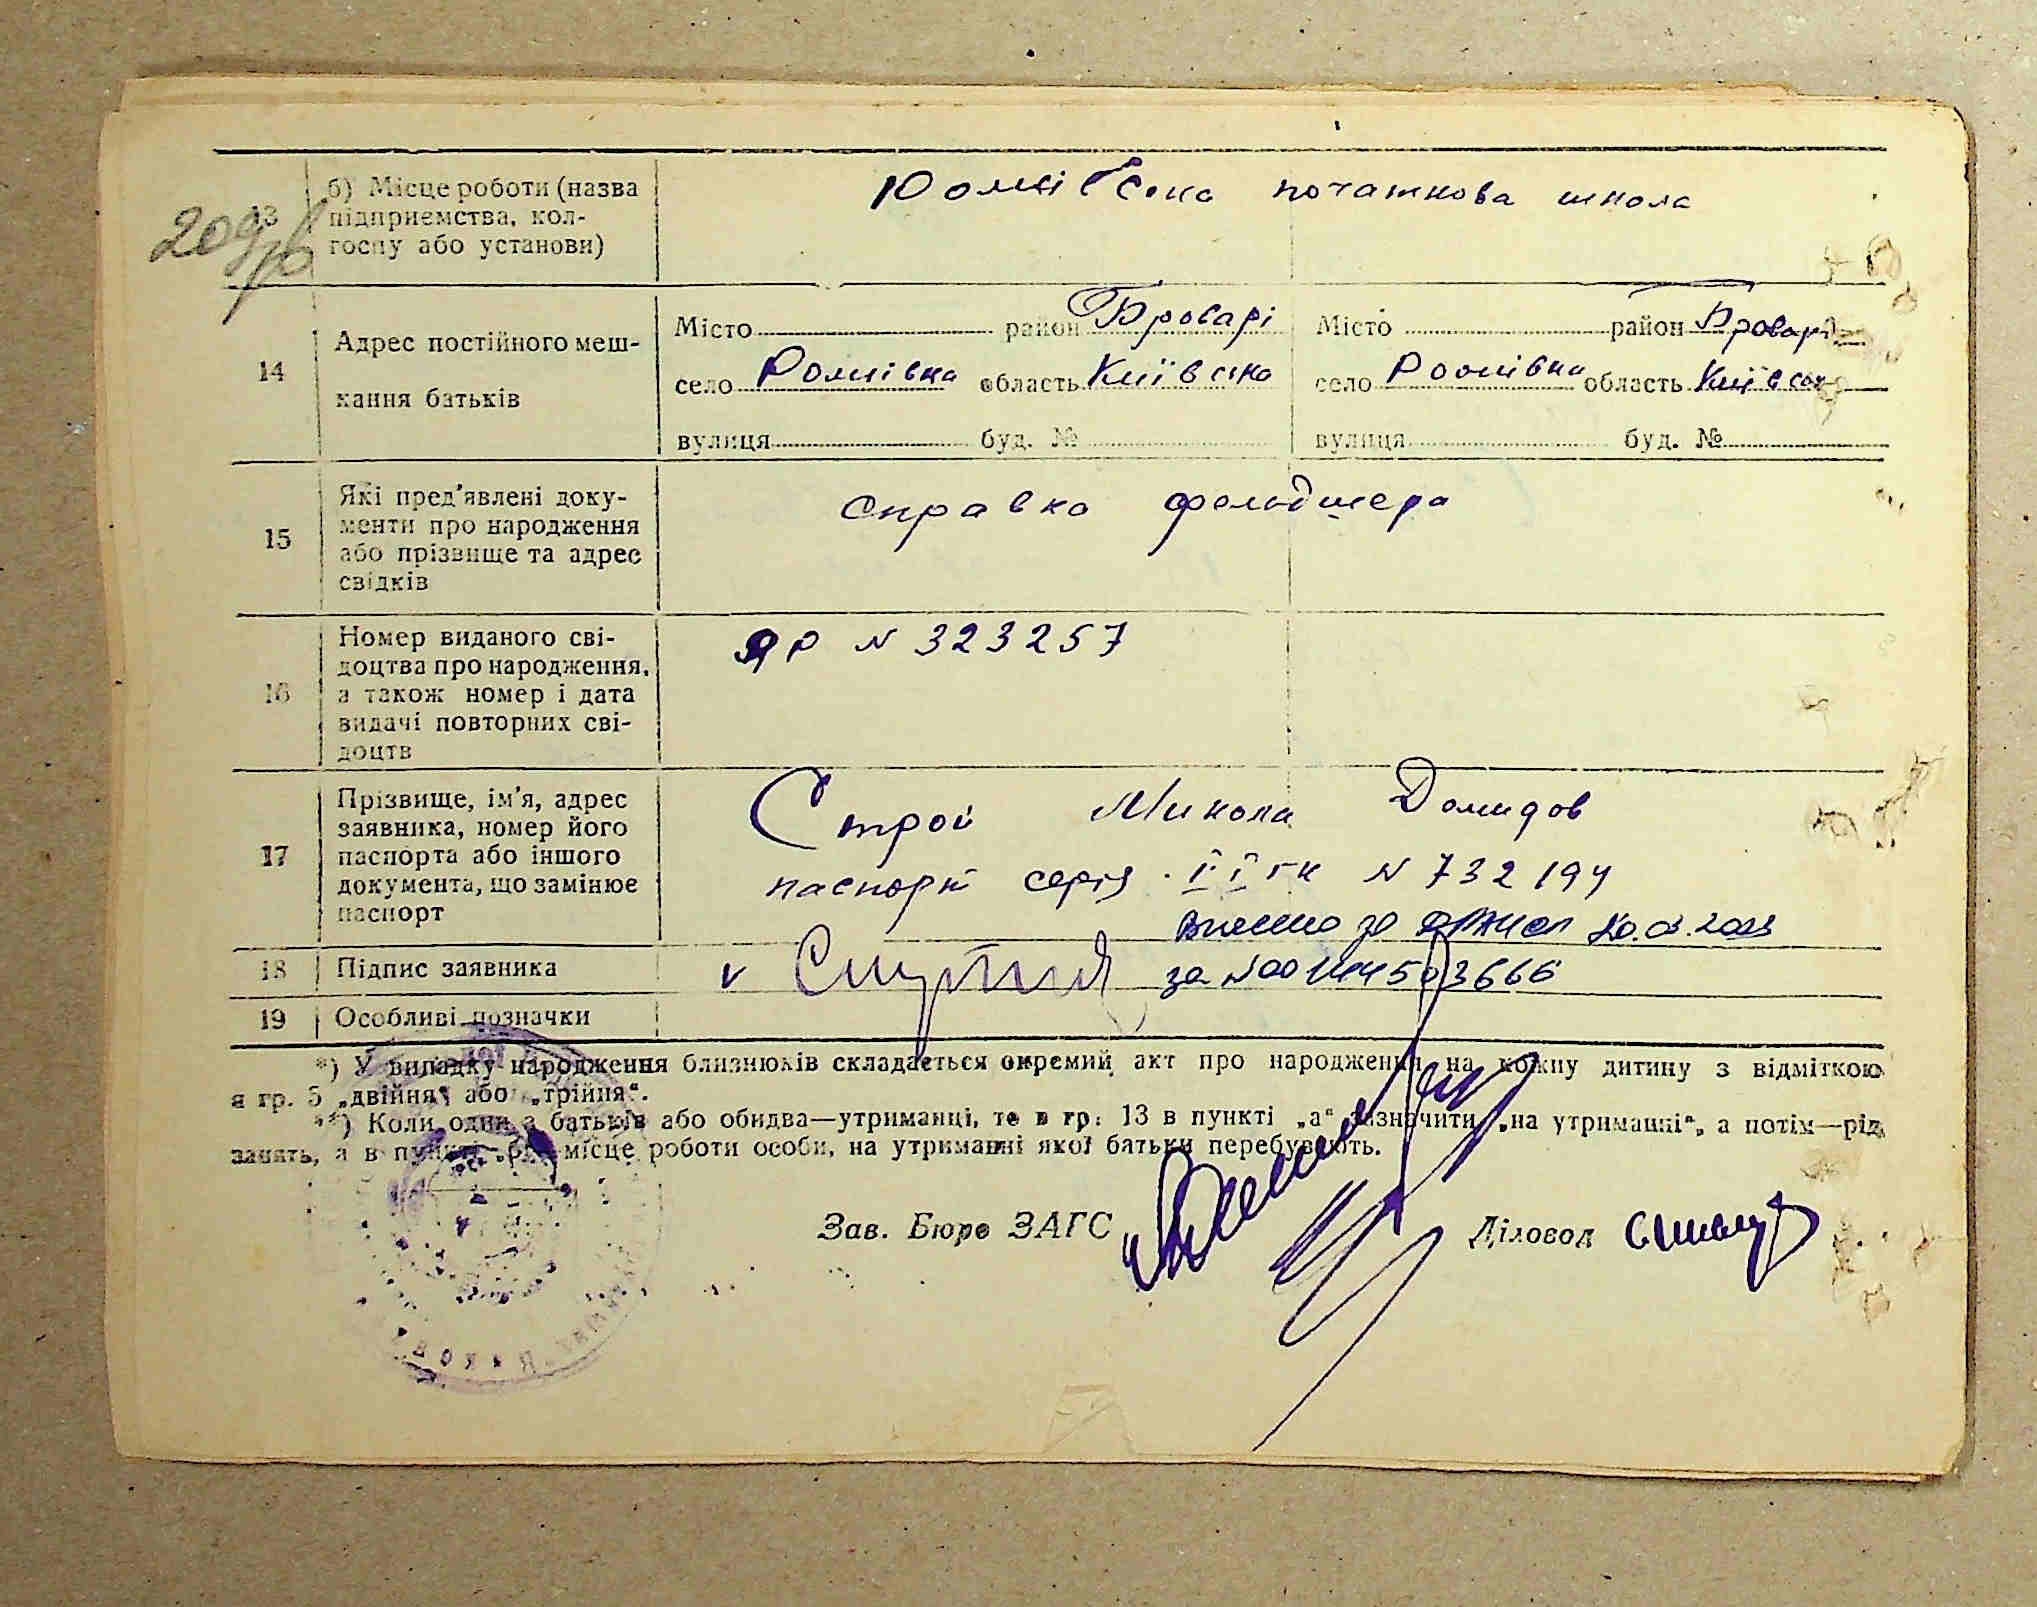 13 б) Місце роботи (назва підприємства, кол-госпу або установи) початкова школа
209
14 Адрес постійного меш-кання батьків
Місто район Броварі Місто район Бровари
село Рожівка область Київська село Рожівка область Київська
вулиця буд. № вулиця буд. №
15 Які пред'явлені доку-
менти про народження
або прізвище та адрес
свідків
справка фельдшера
16 Номер виданого сві-
доцтва про народження,
а також номер і дата
видачі повторних сві-
доцтв
ЯР N 323257
17 Прізвище, ім'я, адрес
заявника, номер його
паспорта або іншого
документа, що замінює
паспорт
Строй Микола Домидов
паспорт серія N 732194
внесено до 2023
18 Підпис заявника v
за N00114503666
19 Особливі позначки
*) У випадку народження близнюків складається окремий акт про народження на кожну дитину з відміткою
в гр. 5 „двійня“ або „трійня“.
**) Коли один з батьків або обидва—утриманці, то в гр. 13 в пункті „а“ зазначити „на утриманні“, а потім—рід
занять, а в пункті „б“ місце роботи особи, на утриманні якої батьки перебувають.
Зав. Бюро ЗАГС Діловод